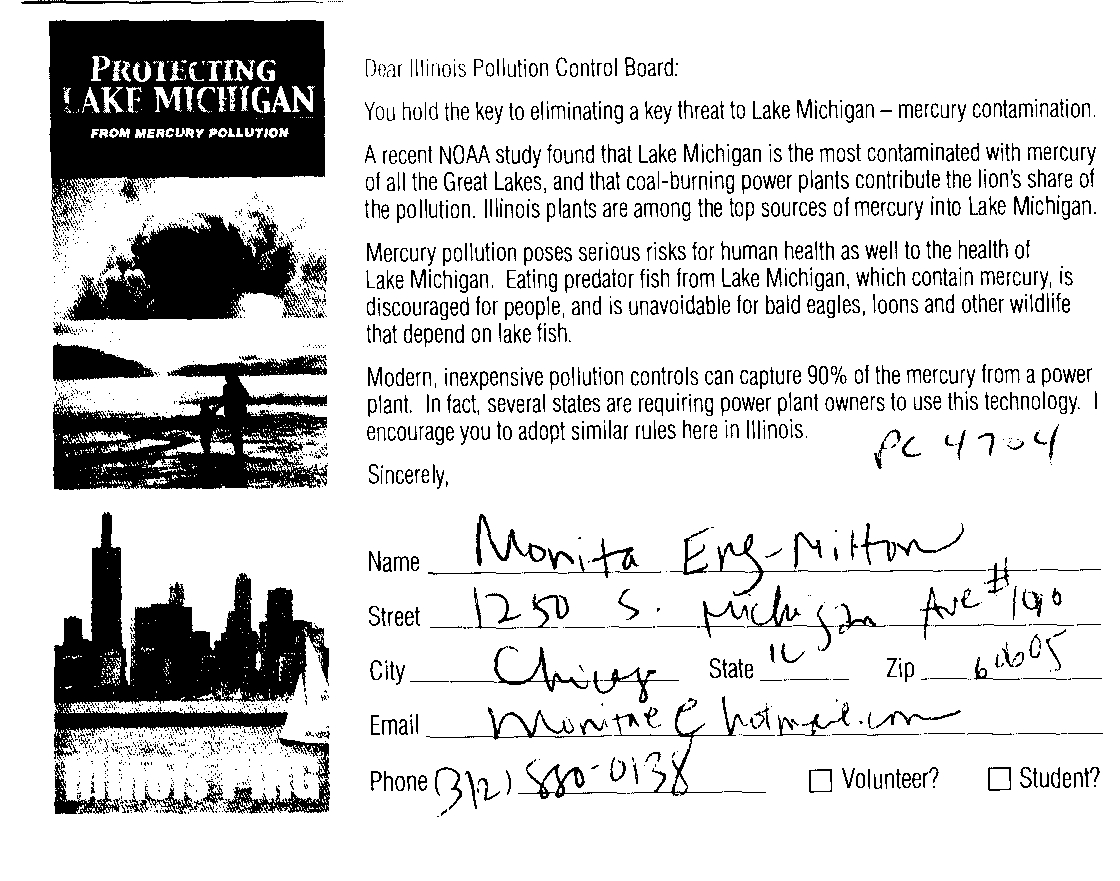 PROTECTING
LAKE MICHIGAN
FROM MERCURY POLLUTION
Illinois PIRG
Dear Illinois Pollution Control Board:
You hold the key to eliminating a key threat to Lake Michigan – mercury contamination.
A recent NOAA study found that Lake Michigan is the most contaminated with mercury
of all the Great Lakes, and that coal-burning power plants contribute the lion's share of
the pollution. Illinois plants are among the top sources of mercury into Lake Michigan.
Mercury pollution poses serious risks for human health as well to the health of
Lake Michigan. Eating predator fish from Lake Michigan, which contain mercury, is
discouraged for people, and is unavoidable for bald eagles, loons and other wildlife
that depend on lake fish.
Modern, inexpensive pollution controls can capture 90% of the mercury from a power
plant. In fact, several states are requiring power plant owners to use this technology. I
encourage you to adopt similar rules here in Illinois.
PC 4704
Sincerely,
Name Monita Eng-Mitton
Street 1250 S. Michigan Ave #
City Chicago State IL Zip 60605
Email @hotmail.com
Phone (312) 880-0138 Volunteer? Student?